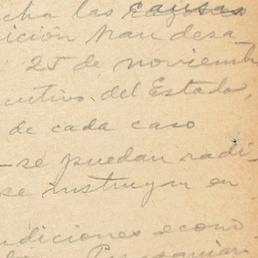 cha las causas
ición han desa
25 de noviembr
cutivo del Estado,
de cada caso
se puedan radi-
se instruyan en
ndiciones econó-